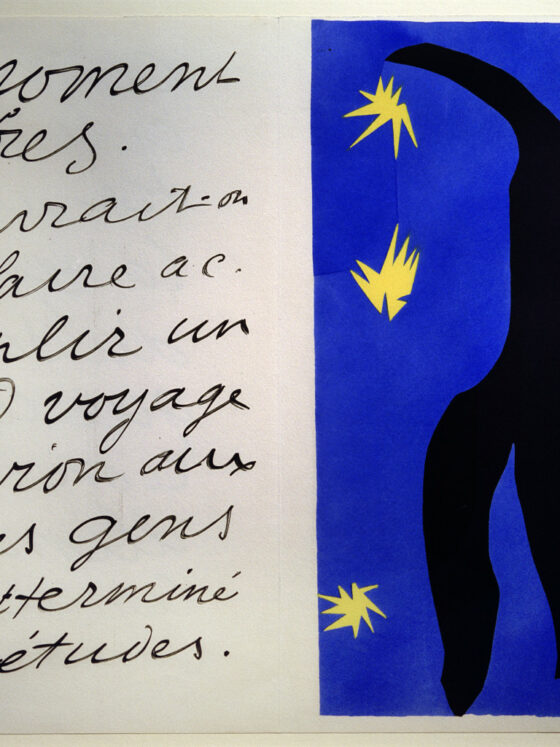 moment
bres.
vrait-on
faire ac.
plir un
) voyage
vion aux
es gens
t terminé
études.